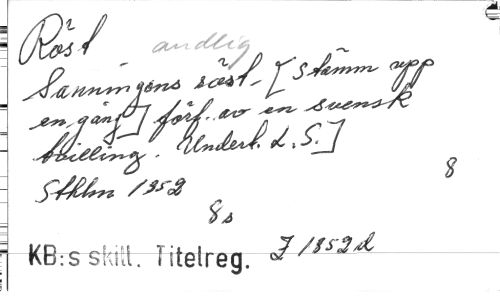 Röst andlig
Sanningens röst. [Stämm upp
en gång] förf. av en svensk
tvilling. Undert. L. S.]
8
Sthlm 1852
8 s
KB:s skill. Titelreg. F 1852 d